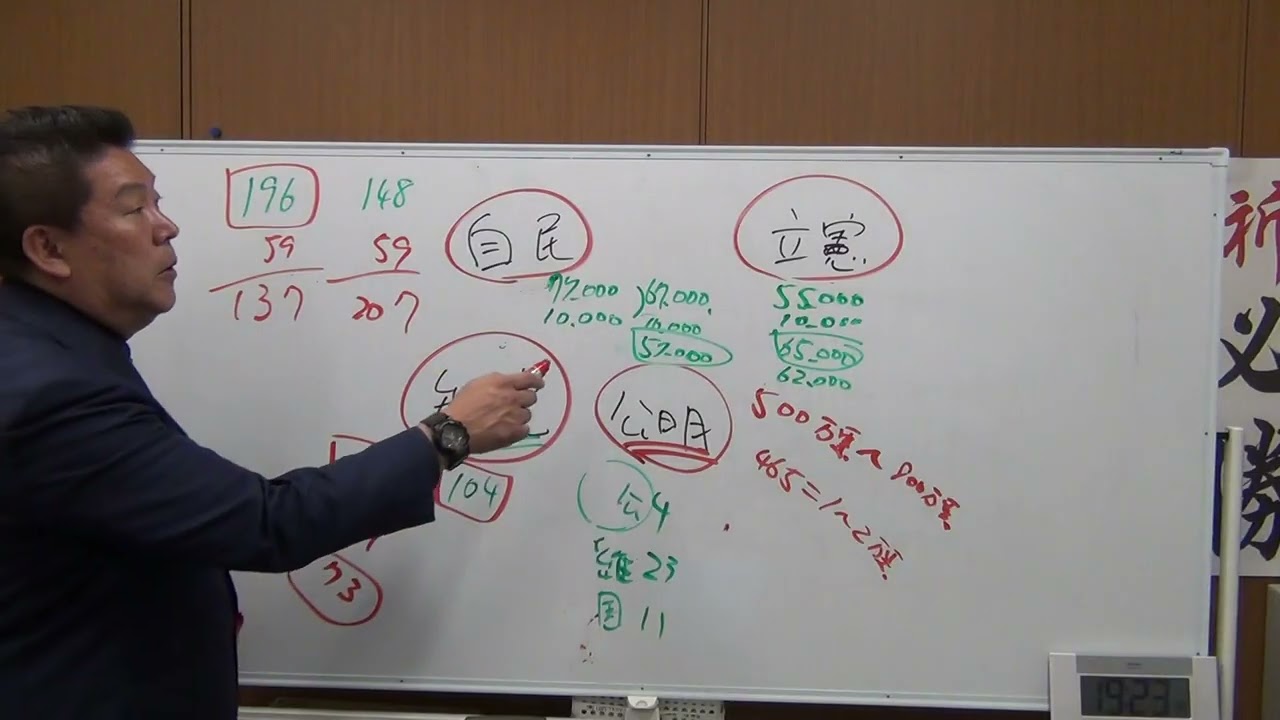 196 148
59 59
137 207
自民
立憲
77.000 67.000
10.000 10.000
57.000
55000
10.000
65.000
62.000
公明
500万票～800万票
465=1～2万票
104
公4
維23
国11
33
祈
必
勝
19:23